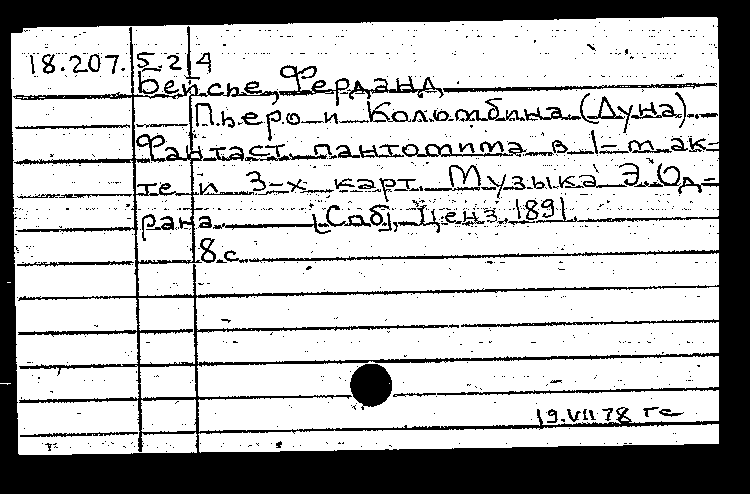 18.207.5.2.4
Бейсье, Фердинанд.
Пьеро и Коломбина (Луна).
Фантаст. пантомима в 1-м ак-
те и 3-х карт. Музыка Э. Од-
рана [Спб], Ценз. 1891.
8 с
19.VII 78 те